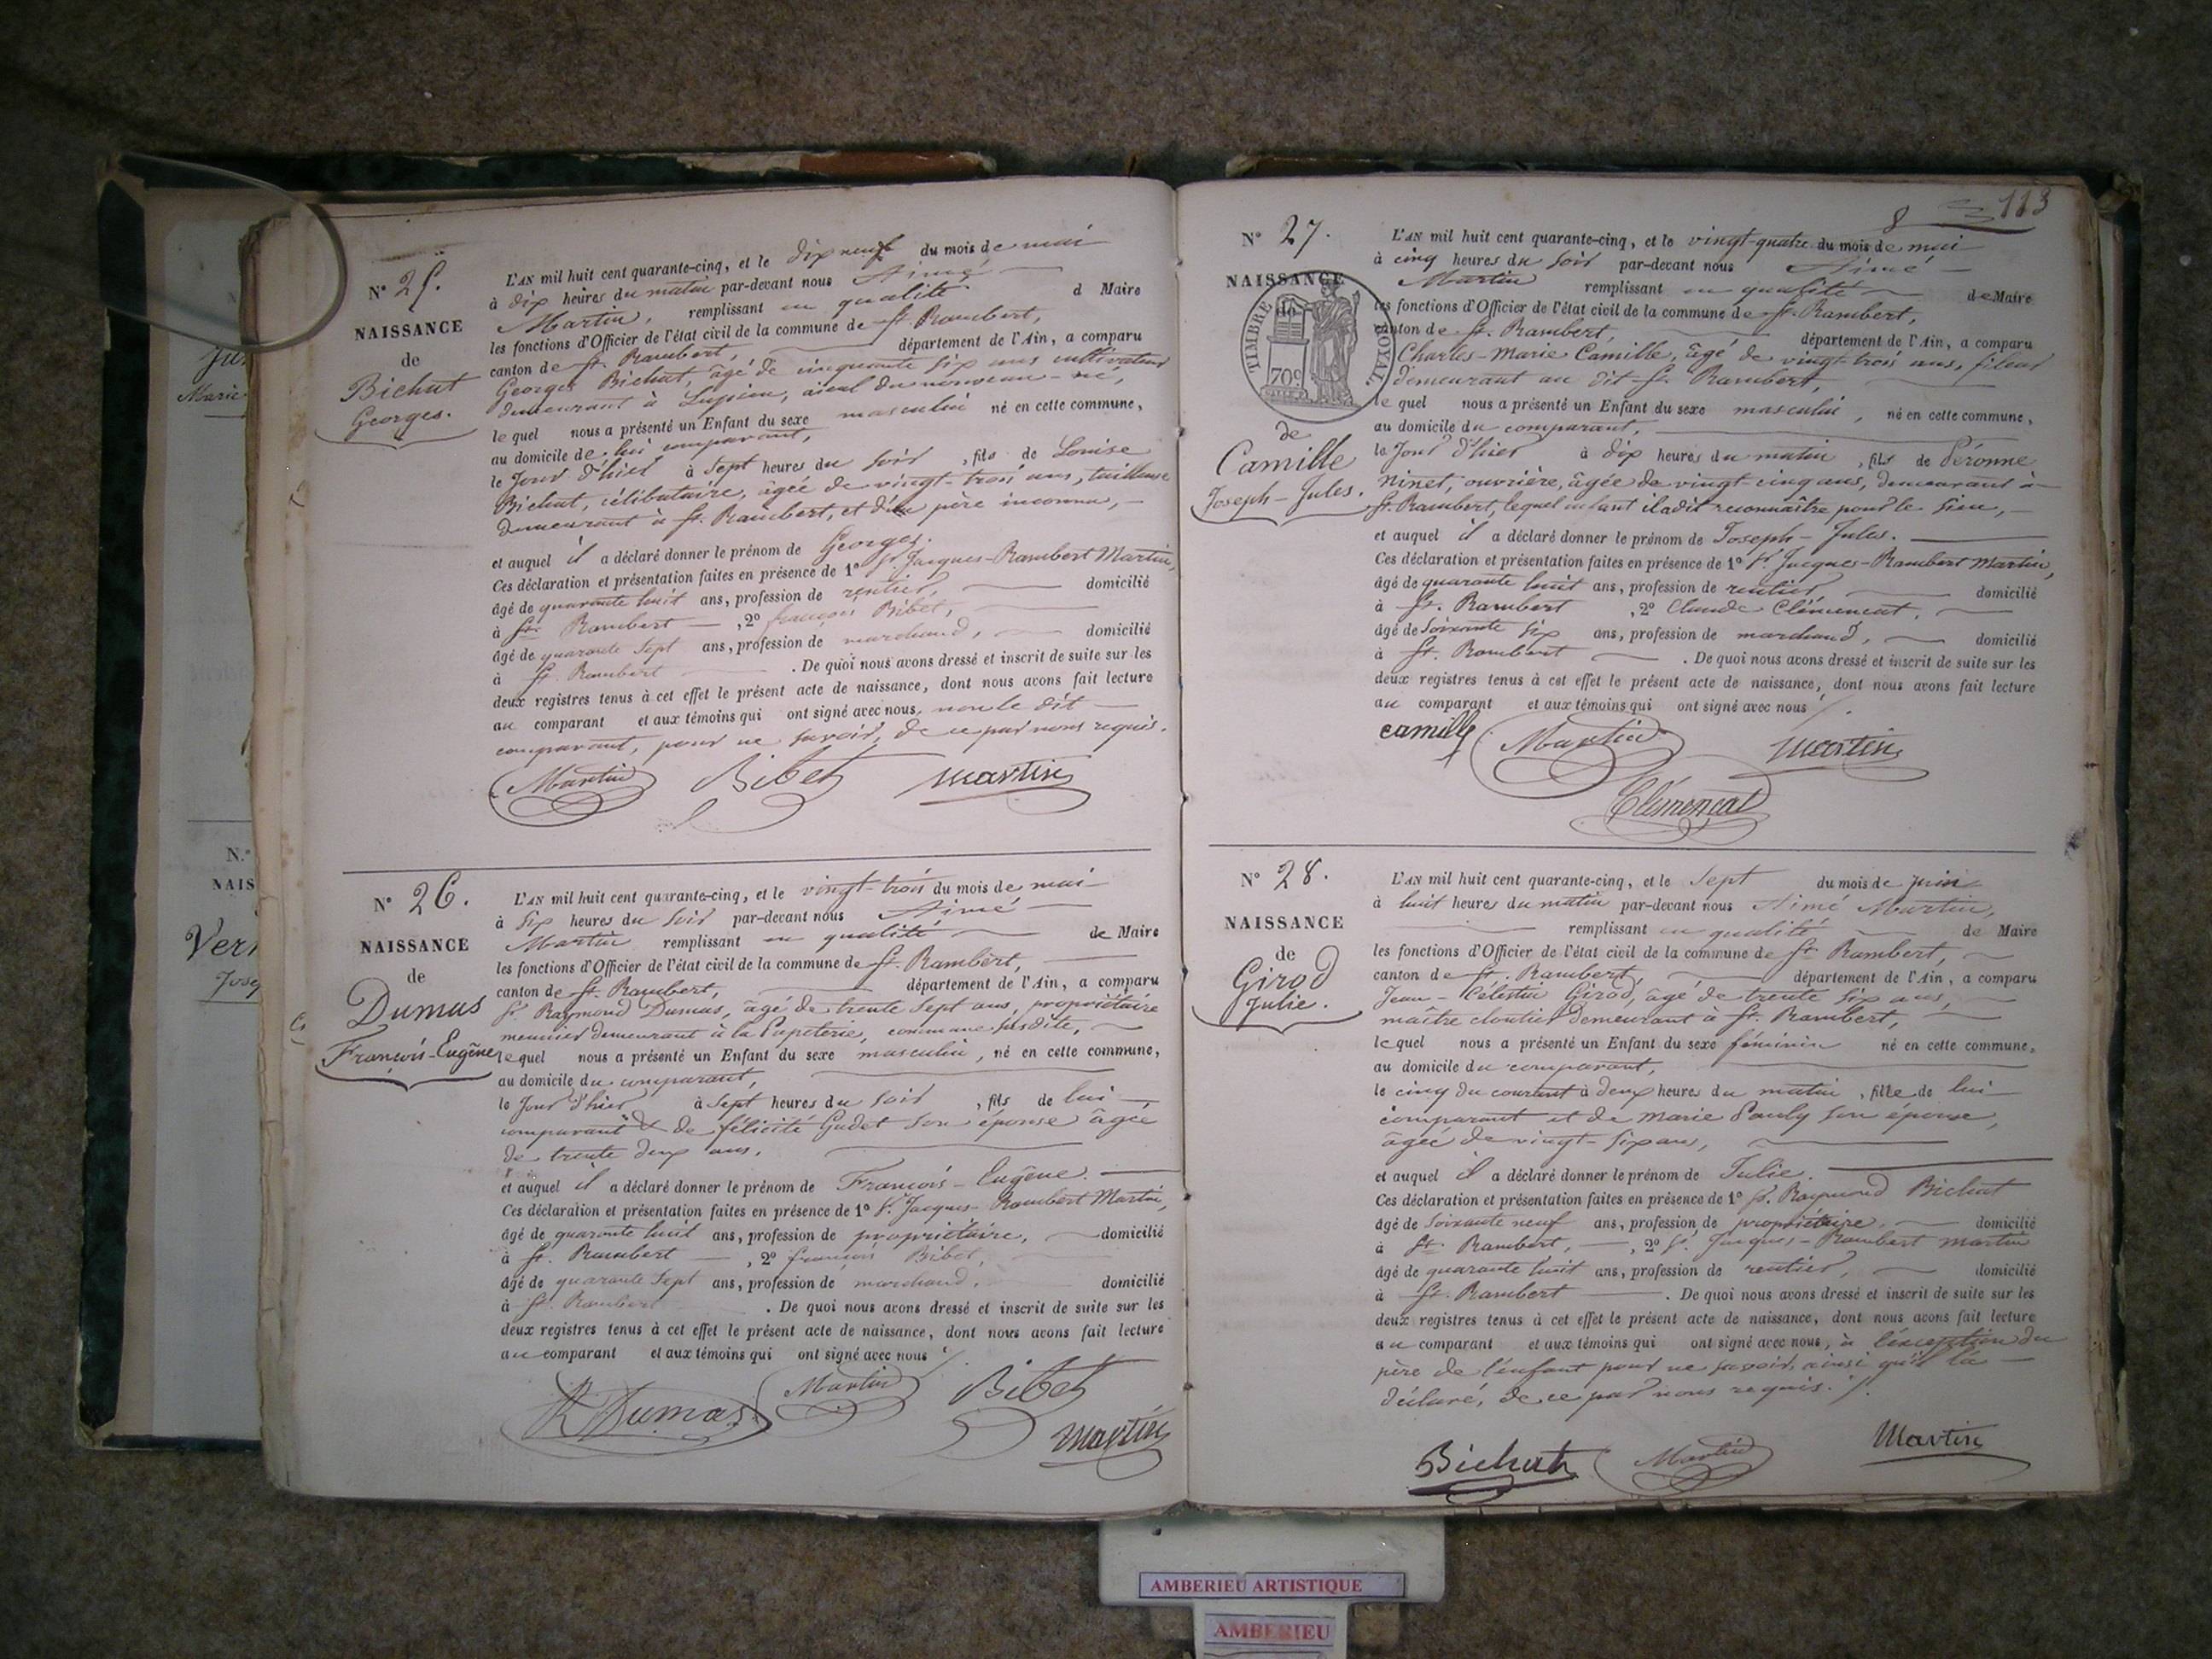 N° 25.
NAISSANCE
de
Bichat
Georges.
L'AN mil huit cent quarante-cinq, et le dix neuf du mois de mai
à dix heures du matin par-devant nous Aimé
Martin, remplissant en qualité d Maire
les fonctions d'Officier de l'état civil de la commune de St. Rambert,
canton de St. Rambert, département de l'Ain, a comparu
Georges Bichat, âgé de cinquante six ans cultivateur
demeurant à Lupieu, aïeul du nouveau-né,
le quel nous a présenté un Enfant du sexe masculin né en cette commune,
au domicile de lui comparant,
le Jour d'hier à Sept heures du soir, fils de Louise
Bichat, célibataire, âgée de vingt-trois ans, tailleuse
demeurant à St. Rambert, et d'un père inconnu,
et auquel il a déclaré donner le prénom de Georges.
Ces déclaration et présentation faites en présence de 1° Sr. Jacques-Rambert Martin,
âgé de quarante huit ans, profession de rentier, domicilié
à St. Rambert, 2° françois Bibet,
âgé de quarante Sept ans, profession de marchand, domicilié
à St. Rambert. De quoi nous avons dressé et inscrit de suite sur les
deux registres tenus à cet effet le présent acte de naissance, dont nous avons fait lecture
au comparant et aux témoins qui ont signé avec nous, non le dit
comparant, pour ne savoir, de ce par nous requis.
Martin Bibet Martin
N° 26.
NAISSANCE
de
Dumas
François-Eugêne
L'AN mil huit cent quarante-cinq, et le vingt-trois du mois de mai
à six heures du soir par-devant nous Aimé
Martin remplissant en qualité de Maire
les fonctions d'Officier de l'état civil de la commune de St. Rambert,
canton de St. Rambert, département de l'Ain, a comparu
Sr. Raymond Dumas, âgé de trente Sept ans, propriétaire
meunier demeurant à la Papeterie, commune susdite,
le quel nous a présenté un Enfant du sexe masculin, né en cette commune,
au domicile du comparant,
le Jour d'hier à Sept heures du soir, fils de lui
comparant & de félicité Gudet son épouse âgée
de trente deux ans.
et auquel il a déclaré donner le prénom de François-Eugêne.
Ces déclaration et présentation faites en présence de 1° Sr. Jacques-Rambert Martin,
âgé de quarante huit ans, profession de propriétaire, domicilié
à St. Rambert, 2° françois Bibet,
âgé de quarante Sept ans, profession de marchand, domicilié
à St. Rambert. De quoi nous avons dressé et inscrit de suite sur les
deux registres tenus à cet effet le présent acte de naissance, dont nous avons fait lecture
au comparant et aux témoins qui ont signé avec nous
R Dumas Martin Bibet
Martin
8 113
N° 27.
NAISSANCE
TIMBRE ROYAL
70c
de
Camille
Joseph-Jules.
L'AN mil huit cent quarante-cinq, et le vingt-quatre du mois de mai
à cinq heures du soir par-devant nous Aimé
Martin remplissant en qualité de Maire
les fonctions d'Officier de l'état civil de la commune de St. Rambert,
canton de St. Rambert, département de l'Ain, a comparu
Charles-Marie Camille, âgé de vingt-trois ans, fileur
demeurant au dit St. Rambert,
le quel nous a présenté un Enfant du sexe masculin, né en cette commune,
au domicile du comparant,
le Jour d'hier à dix heures du matin, fils de Péronne
ninet, ouvrière, âgée de vingt-cinq ans, demeurant à
St. Rambert, lequel enfant il a dit reconnaître pour le sien,
et auquel il a déclaré donner le prénom de Joseph-Jules.
Ces déclaration et présentation faites en présence de 1° Sr. Jacques-Rambert Martin,
âgé de quarante huit ans, profession de rentier, domicilié
à St. Rambert, 2° Claude Clémencat,
âgé de Soixante six ans, profession de marchand, domicilié
à St. Rambert. De quoi nous avons dressé et inscrit de suite sur les
deux registres tenus à cet effet le présent acte de naissance, dont nous avons fait lecture
au comparant et aux témoins qui ont signé avec nous
camille Martin Martin
Clémençat
N° 28.
NAISSANCE
de
Girod
Julie.
L'AN mil huit cent quarante-cinq, et le Sept du mois de juin
à huit heures du matin par-devant nous Aimé Martin,
remplissant en qualité de Maire
les fonctions d'Officier de l'état civil de la commune de St. Rambert,
canton de St. Rambert, département de l'Ain, a comparu
Jean-Célestin Girod, âgé de trente six ans,
maître cloutier demeurant à St. Rambert,
le quel nous a présenté un Enfant du sexe féminin né en cette commune,
au domicile du comparant,
le cinq du courant à deux heures du matin, fille de lui
comparant et de marie Pauly son épouse,
âgée de vingt-six ans,
et auquel il a déclaré donner le prénom de Julie.
Ces déclaration et présentation faites en présence de 1° Sr. Raymond Bichat
âgé de Soixante neuf ans, profession de propriétaire, domicilié
à St. Rambert, 2° Sr. Jacques-Rambert martin
âgé de quarante huit ans, profession de rentier, domicilié
à St. Rambert. De quoi nous avons dressé et inscrit de suite sur les
deux registres tenus à cet effet le présent acte de naissance, dont nous avons fait lecture
au comparant et aux témoins qui ont signé avec nous, à l'exception du
père de l'enfant pour ne savoir, ainsi qu'il la
déclaré, de ce par nous requis.
Bichat Martin Martin
N.°
NAIS
AMBERIEU ARTISTIQUE
AMBERIEU